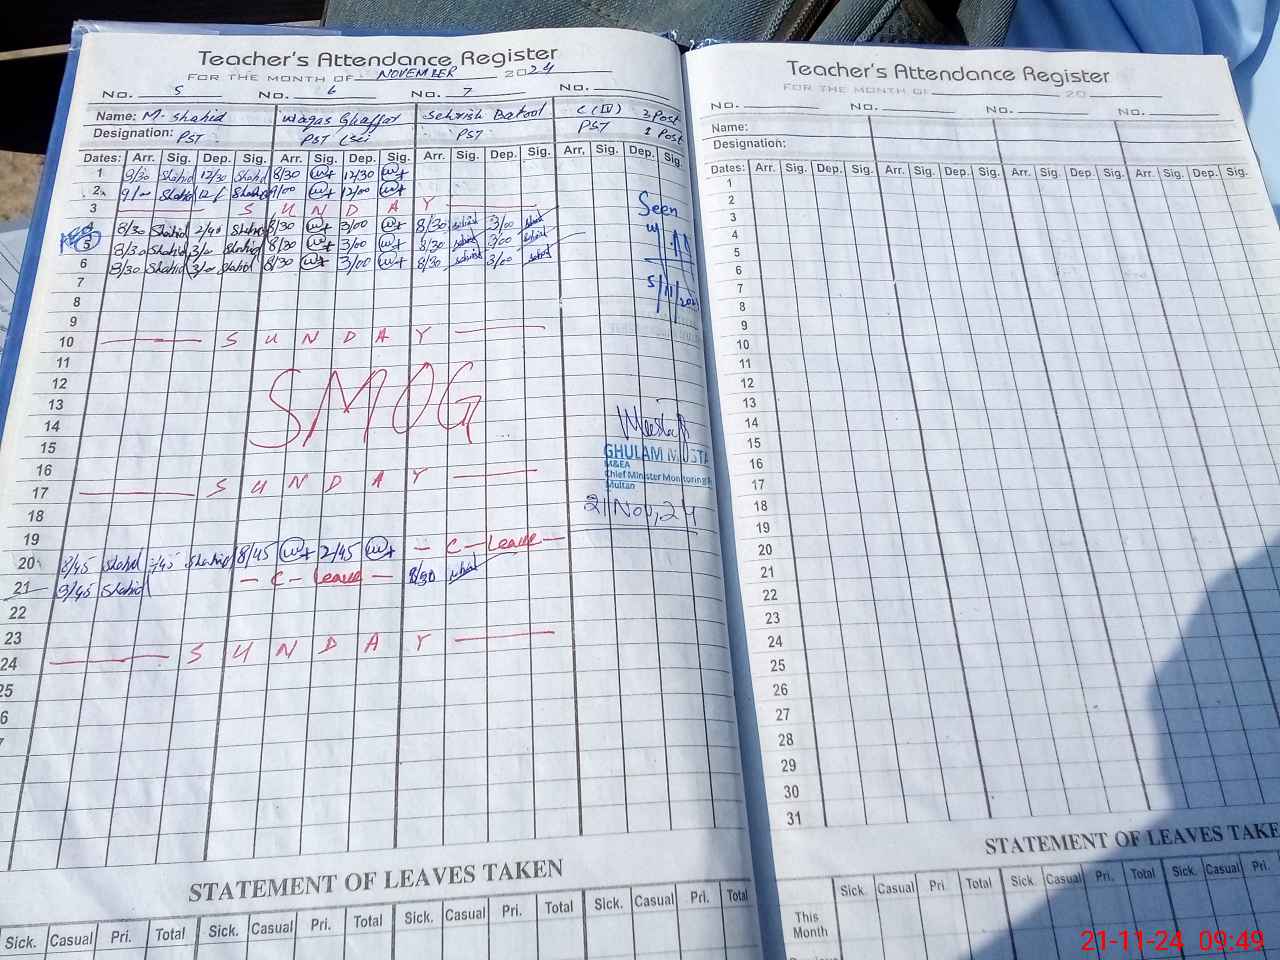 Teacher's Attendance Register
FOR THE MONTH OF NOVEMBER 2024
No. 5 No. 6 No. 7 No.
Name: M. Shahid Waqas Ghaffar Sehrish Batool C (IV) 3 Post
Designation: PST PST PST PST 1 Post
Dates: Arr. Sig. Dep. Sig. Arr. Sig. Dep. Sig. Arr. Sig. Dep. Sig. Arr. Sig. Dep. Sig.
1 9/30 Shahid 12/30 Shahid 8/30 12/30
2 9/00 Shahid Shahid 9/00 12/00
3 S U N D A Y
4 8/30 Shahid 2/40 Shahid 8/30 3/00 8/30 3/00
5 8/30 Shahid 3/00 Shahid 8/30 3/00 8/30 3/00
6 8/30 Shahid 3/00 Shahid 8/30 3/00 8/30 3/00
Seen
5/11/
7
8
9
10 S U N D A Y
11
12
13
14
SMOG
15
16
17 S U N D A Y
GHULAM MUSTA
M&EA
Chief Minister Monitoring
Multan
21 Nov, 24
18
19
20 8/45 Shahid 2/45 Shahid 8/45 2/45 - C - Leave -
21 8/45 Shahid - C - Leave - 8/30
22
23
24 S U N D A Y
25
6
7
STATEMENT OF LEAVES TAKEN
Sick. Casual Pri. Total Sick. Casual Pri. Total Sick. Casual Pri. Total Sick. Casual Pri. Total
Teacher's Attendance Register
FOR THE MONTH OF 20
No. No. No. No.
Name:
Designation:
Dates: Arr. Sig. Dep. Sig. Arr. Sig. Dep. Sig. Arr. Sig. Dep. Sig. Arr. Sig. Dep. Sig.
1
2
3
4
5
6
7
8
9
10
11
12
13
14
15
16
17
18
19
20
21
22
23
24
25
26
27
28
29
30
31
STATEMENT OF LEAVES TAKE
Sick. Casual Pri. Total Sick. Casual Pri. Total Sick. Casual
This
Month
21-11-24 09:49